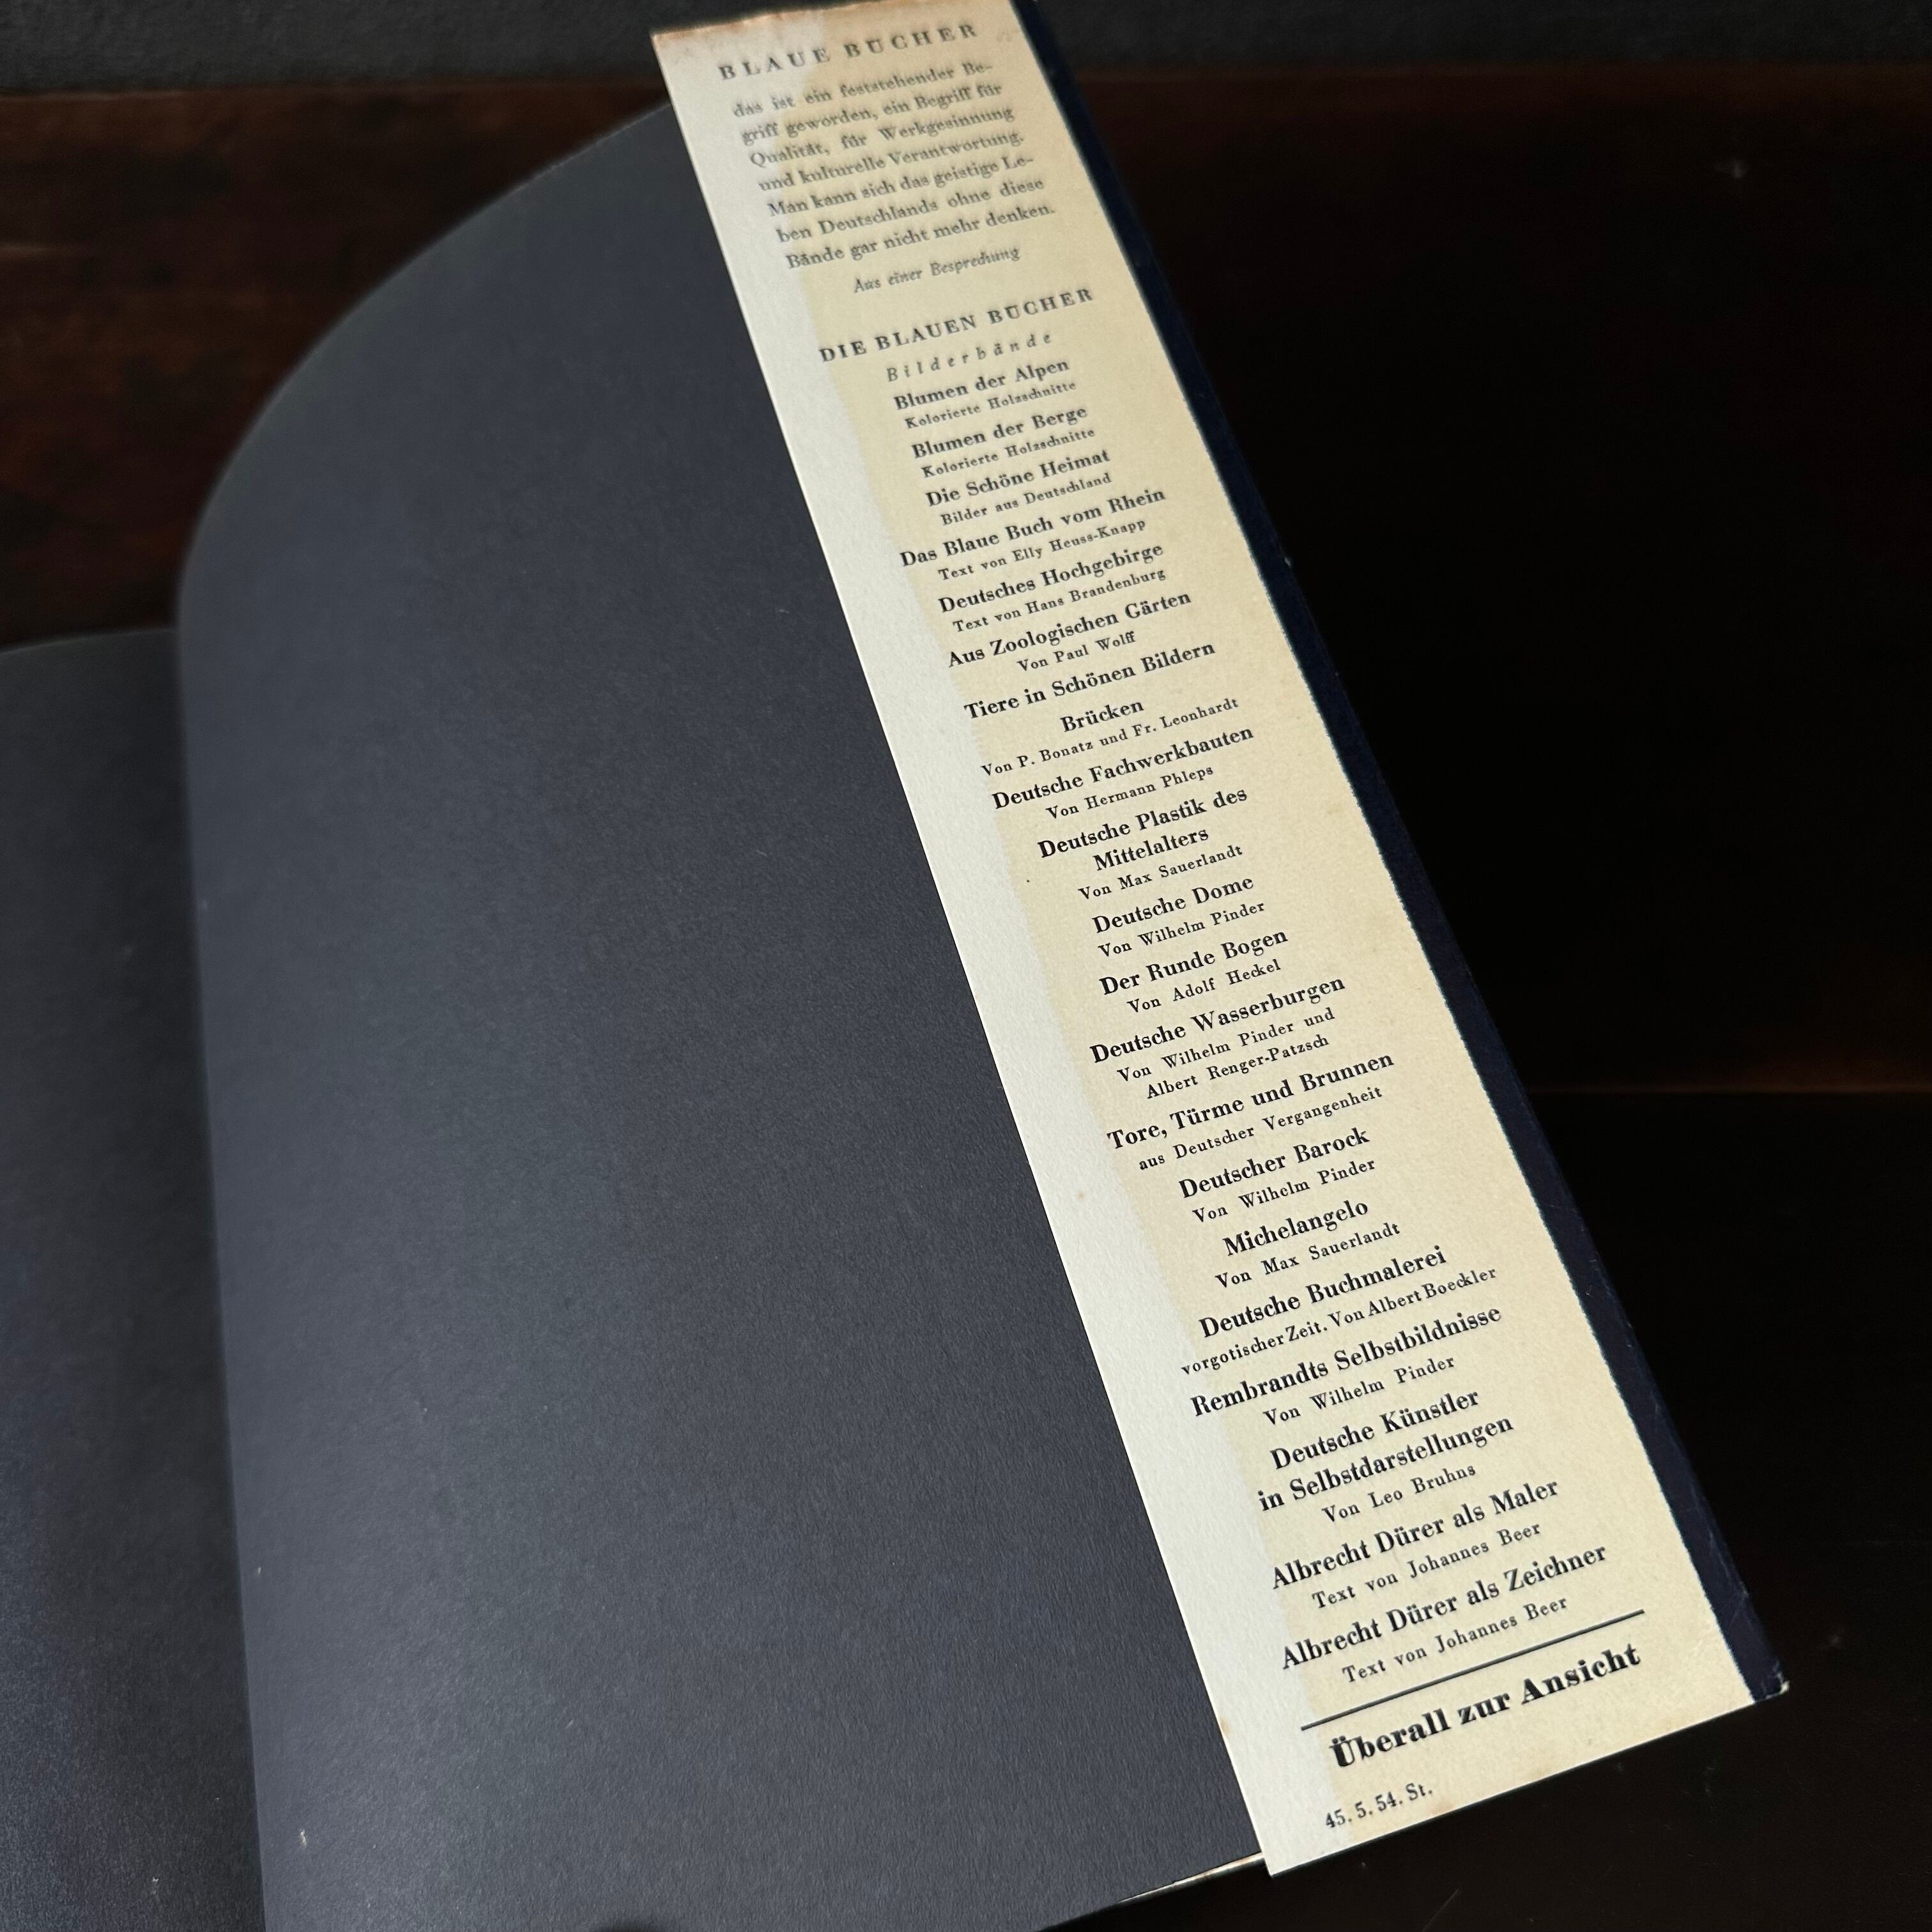 BLAUE BÜCHER
das ist ein feststehender Be-
griff geworden, ein Begriff für
Qualität, für Werkgesinnung
und kulturelle Verantwortung.
Man kann sich das geistige Le-
ben Deutschlands ohne diese
Bände gar nicht mehr denken.
Aus einer Besprechung
DIE BLAUEN BÜCHER
Bilderbände
Blumen der Alpen
Kolorierte Holzschnitte
Blumen der Berge
Kolorierte Holzschnitte
Die Schöne Heimat
Bilder aus Deutschland
Das Blaue Buch vom Rhein
Text von Elly Heuss-Knapp
Deutsches Hochgebirge
Text von Hans Brandenburg
Aus Zoologischen Gärten
Von Paul Wolff
Tiere in Schönen Bildern
Brücken
Von P. Bonatz und Fr. Leonhardt
Deutsche Fachwerkbauten
Von Hermann Phleps
Deutsche Plastik des
Mittelalters
Von Max Sauerlandt
Deutsche Dome
Von Wilhelm Pinder
Der Runde Bogen
Von Adolf Heckel
Deutsche Wasserburgen
Von Wilhelm Pinder und
Albert Renger-Patzsch
Tore, Türme und Brunnen
aus Deutscher Vergangenheit
Deutscher Barock
Von Wilhelm Pinder
Michelangelo
Von Max Sauerlandt
Deutsche Buchmalerei
vorgotischer Zeit. Von Albert Boeckler
Rembrandts Selbstbildnisse
Von Wilhelm Pinder
Deutsche Künstler
in Selbstdarstellungen
Von Leo Bruhns
Albrecht Dürer als Maler
Text von Johannes Beer
Albrecht Dürer als Zeichner
Text von Johannes Beer
Überall zur Ansicht
45. 5. 54. St.